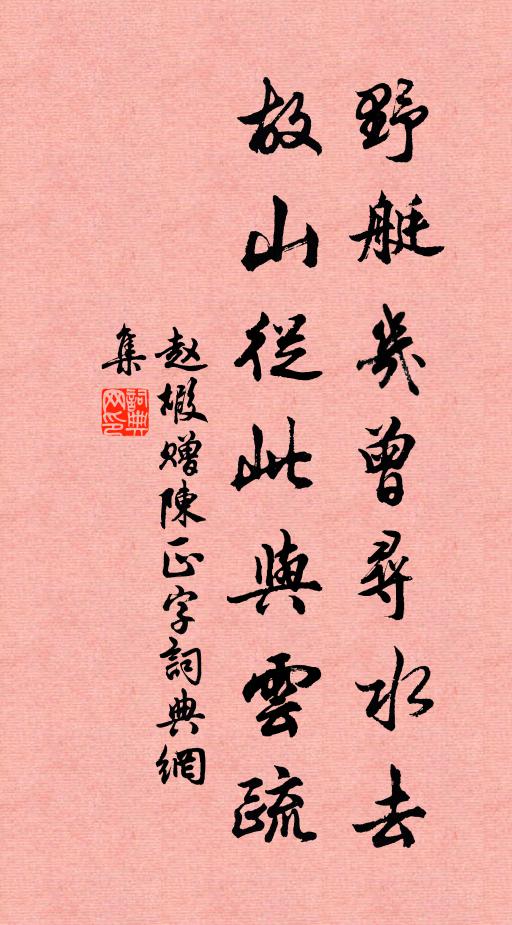 野艇幾曾尋水去
故山從此與雲疏
赵嘏赠陳正字詞典網
集
詞典网印